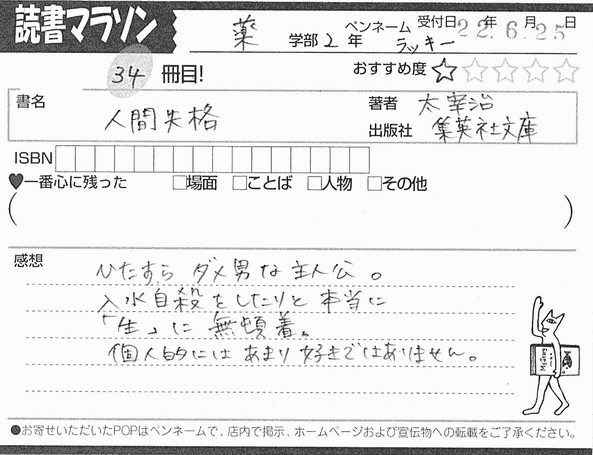 読書マラソン
薬 学部 2 年 ペンネーム ラッキー 受付日 22年 6月 25日
34 冊目!
おすすめ度 ☆☆☆☆☆
書名 人間失格
著者 太宰治
出版社 集英社文庫
ISBN
♥一番心に残った □場面 □ことば □人物 □その他
( )
感想
ひたすら ダメ男な主人公。
入水自殺をしたりと 本当に
「生」に 無頓着。
個人的には あまり 好きではありません。
●お寄せいただいたPOPはペンネームで、店内で掲示、ホームページおよび宣伝物への転載をご了承ください。